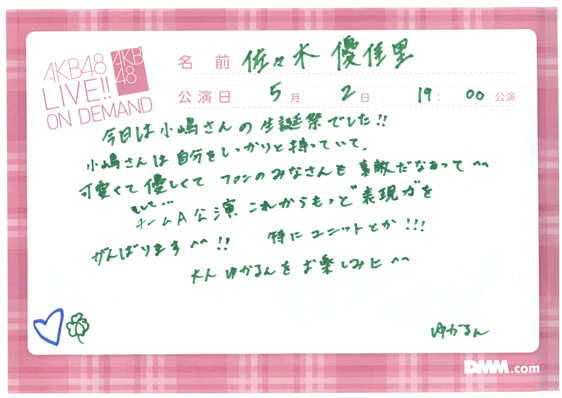 AKB48
LIVE!!
ON DEMAND
AKB
48
名前 佐々木 優佳里
公演日 5月 2日 19:00公演
今日は小嶋さんの生誕祭でした!!
小嶋さんは自分をしっかりと持っていて、
可愛くて優しくて ファンのみなさんも素敵だなぁって^^
そして...
チームA公演 これからもっと"表現力を
がんばります^^!! 特にユニットとか!!!
大人ゆかるんをお楽しみに^^
ゆかるん
DMM.com